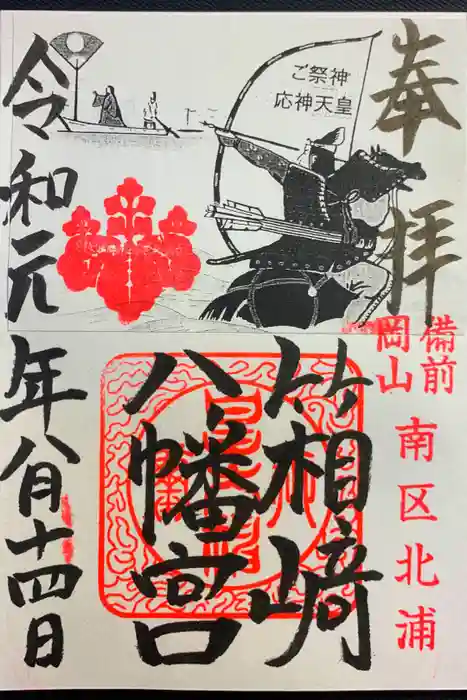 奉拝
ご祭神
応神天皇
備前
岡山
南区北浦
竹相﨑
八幡宮
令和元年八月十四日